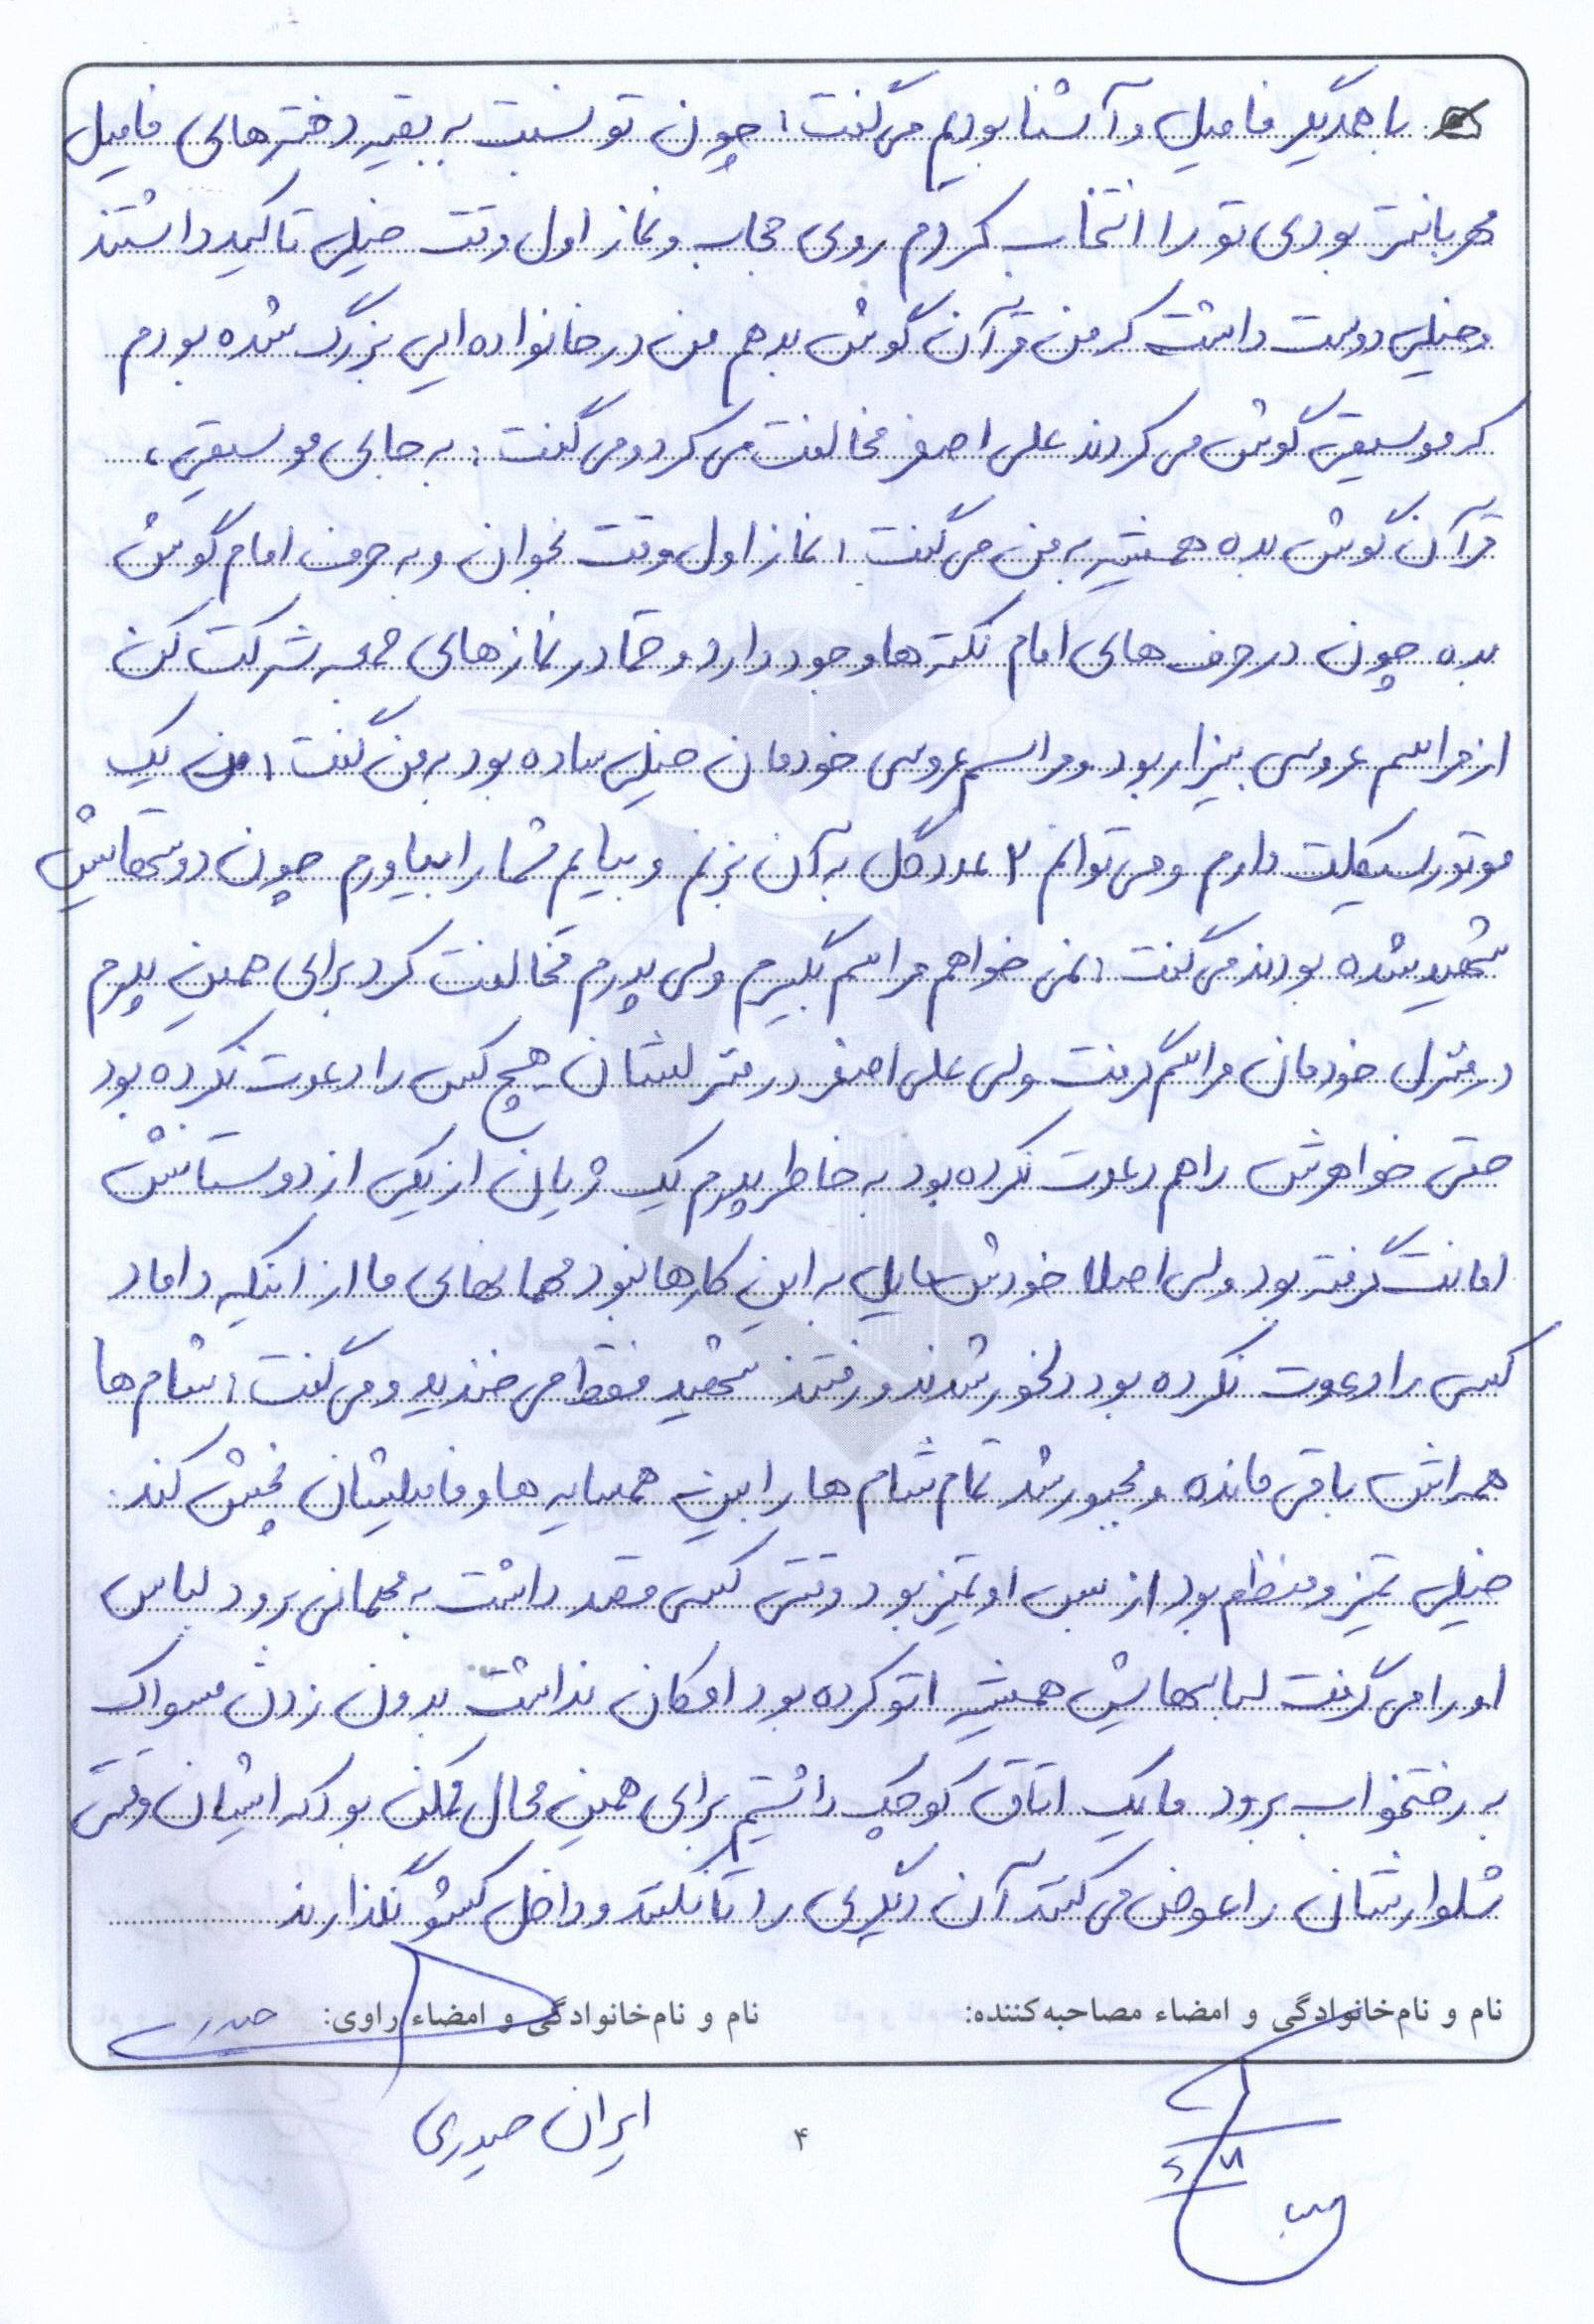 باهمدیگر فامیل و آشنا بودیم می‌گفت: چون تو نسبت به بقیه دخترهای فامیل
مهربانتر بودی تو را انتخاب کردم روی حجاب و نماز اول وقت خیلی تاکید داشتند
و خیلی دوست داشت که من قرآن گوش بدهم من در خانواده ایی بزرگ شده بودم
که موسیقی گوش می کردند علی اصغر مخالفت می کرد و می گفت: به جای موسیقی،
قرآن گوش بده همیشه به من می گفت: نماز اول وقت بخوان و به حرف امام گوش
بده چون در حرف های امام نکته ها وجود دارد و حتما در نمازهای جمعه شرکت کن
از مراسم عروسی بیزار بود و مراسم عروسی خودمان خیلی ساده بود به من گفت: من یک
موتورسیکلت دارم و می توانم ۲ عدد گل به آن بزنم و بیایم شما را بیاورم چون دوستهایش
شهید شده بودند می گفت: نمی خواهم مراسم بگیرم ولی پدرم مخالفت کرد برای همین پدرم
در منزل خودمان مراسم گرفت ولی علی اصغر در منزلشان هیچ کس را دعوت نکرده بود
حتی خواهرش را هم دعوت نکرده بود به خاطر پدرم یک ژیان از یکی از دوستانش
امانت گرفته بود ولی اصلا خودش مایل به این کارها نبود مهمانهای ما از اینکه داماد
کسی را دعوت نکرده بود دلخور شدند و رفتند شهید فقط می خندید و می گفت: شام ها
همه اش باقی مانده و مجبور شد تمام شام ها را بین همسایه ها و فامیلیشان پخش کند.
خیلی تمیز و منظم بود از بس او تمیز بود وقتی کسی قصد داشت به مهمانی برود لباس
او را می گرفت لباسهایش همیشه اتو کرده بود امکان نداشت بدون زدن مسواک
به رختخواب برود ما یک اتاق کوچک داشتیم برای همین محال ممکن بود که ایشان وقتی
شلوارشان را عوض می کنند آن دیگری را تا نکند و داخل کشو نگذارند
نام و نام‌خانوادگی و امضاء مصاحبه‌کننده: نام و نام‌خانوادگی و امضاء راوی: حیدری
ایران حیدری
۴